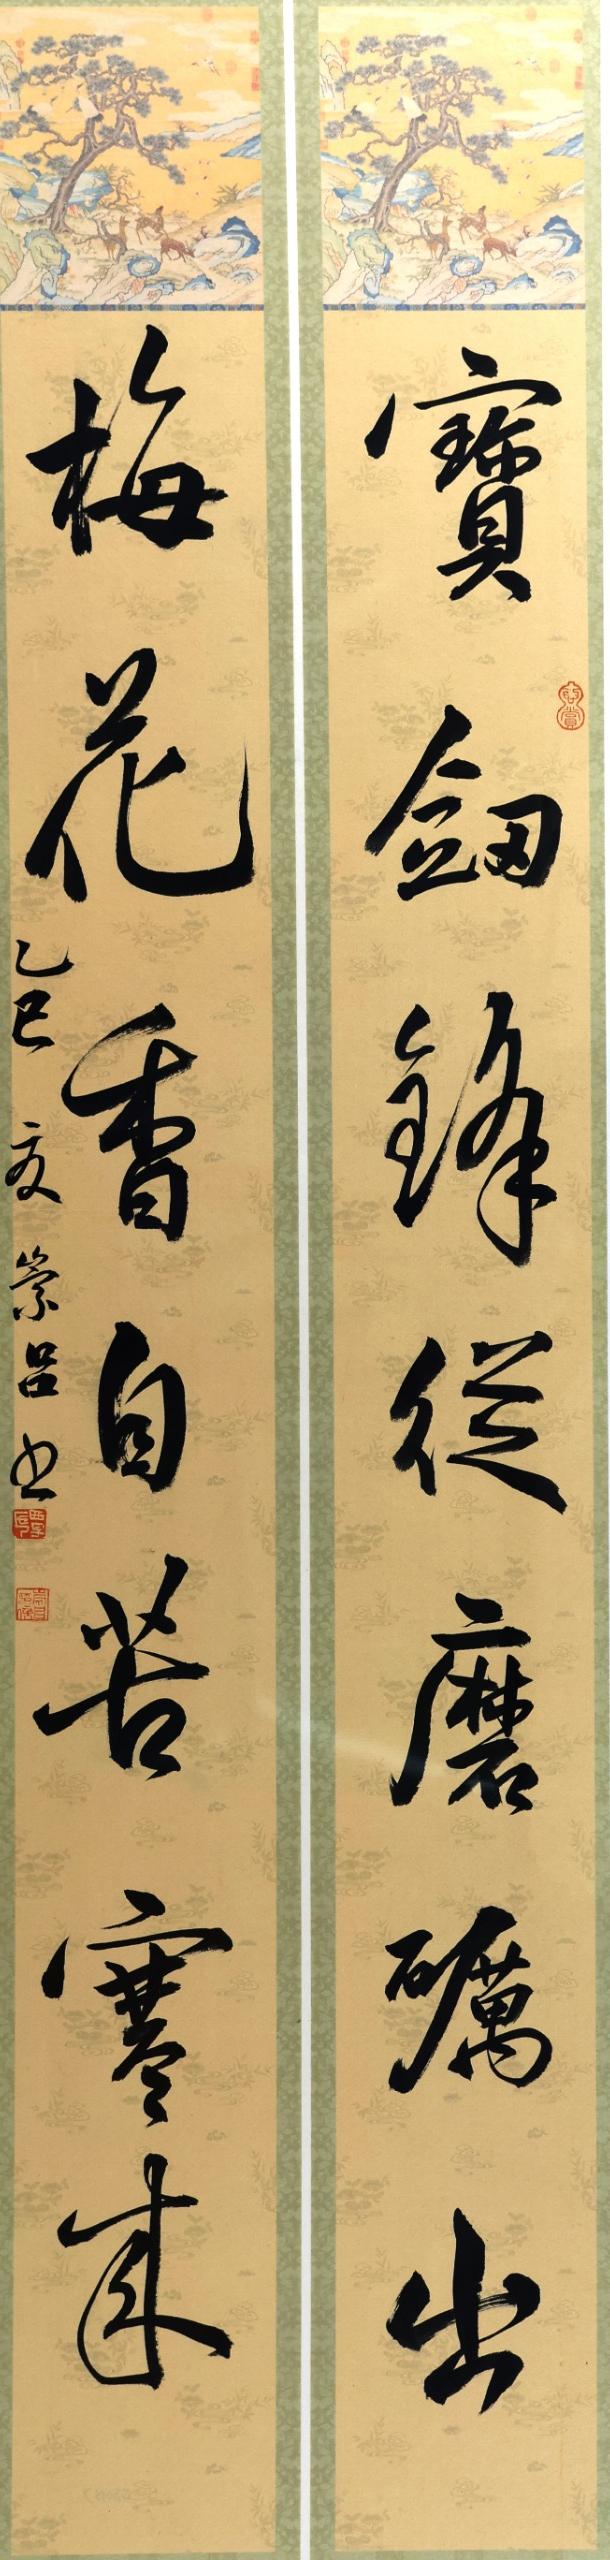 寶劔鋒從磨礪出
梅花香自苦寒來
乙巳夏崇呂书